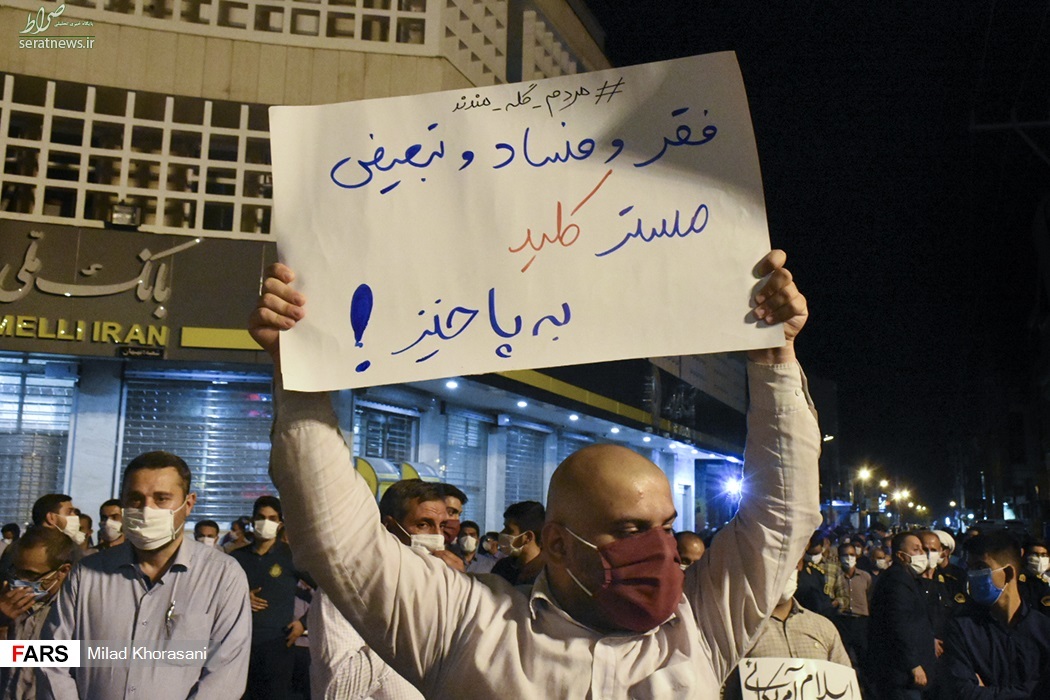 صراط
پایگاه خبری تحلیلی
seratnews.ir
#مردم_گله_مندند
فقر و فساد و تبعیض
مستر کلید
به پا خیز!
بانک ملی
MELLI IRAN
اسلام آمریکایی
FARS Milad Khorasani